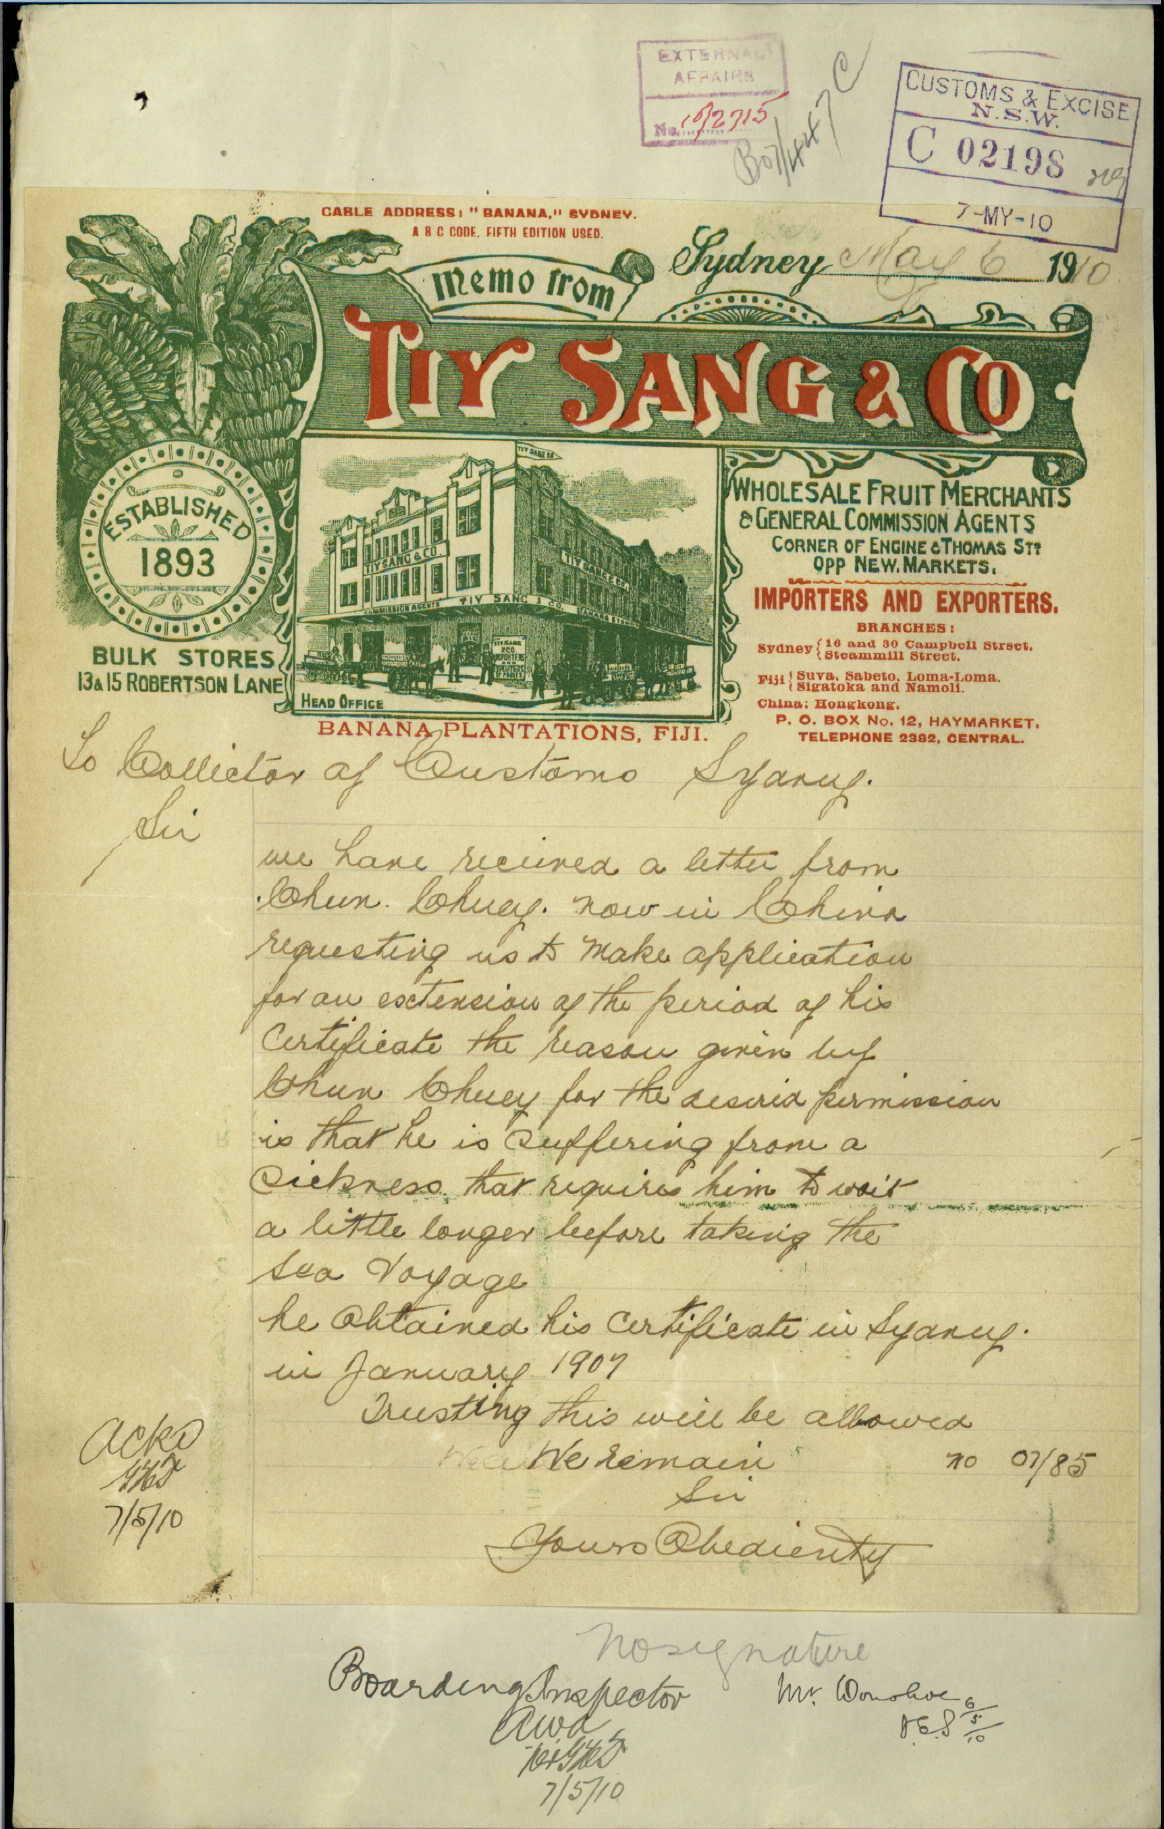 EXTERNAL
AFFAIRS
No. 10/2715
B07/4447 C
CUSTOMS & EXCISE
N.S.W.
C 02198
7-MY-10
CABLE ADDRESS: "BANANA," SYDNEY.
A B C CODE, FIFTH EDITION USED.
Memo from
Sydney May 6 1910
TIY SANG & CO
ESTABLISHED
1893
BULK STORES
13 & 15 ROBERTSON LANE
TIY SANG & CO.
TIY SANG & CO.
COMMISSION AGENTS TIY SANG & CO.
HEAD OFFICE
BANANA PLANTATIONS, FIJI.
WHOLESALE FRUIT MERCHANTS
& GENERAL COMMISSION AGENTS
CORNER OF ENGINE & THOMAS STS
OPP NEW. MARKETS.
IMPORTERS AND EXPORTERS.
BRANCHES:
Sydney { 16 and 30 Campbell Street.
Steammill Street.
Fiji { Suva, Sabeto, Loma-Loma.
Sigatoka and Namoli.
China: Hongkong.
P. O. BOX No. 12, HAYMARKET.
TELEPHONE 2382, CENTRAL.
To Collector of Customs Sydney.
Sir
we have received a letter from
Chun Chuey. now in China
requesting us to make application
for an extension of the period of his
Certificate the reason given by
Chun Chuey for the desired permission
is that he is suffering from a
Sickness that requires him to wait
a little longer before taking the
Sea Voyage
he obtained his certificate in Sydney.
in January 1907
Trusting this will be allowed
We remain
no 07/85
Sir
Yours Obediently
Ackd
7/5/10
No signature
Boarding Inspector
Mr. Donohoe
6/5/10
7/5/10